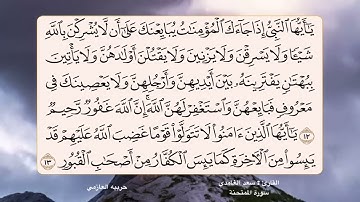 يَٰٓأَيُّهَا ٱلنَّبِىُّ إِذَا جَآءَكَ ٱلْمُؤْمِنَٰتُ يُبَايِعْنَكَ عَلَىٰٓ أَن لَّا يُشْرِكْنَ بِٱللَّهِ
شَيْـًٔا وَلَا يَسْرِقْنَ وَلَا يَزْنِينَ وَلَا يَقْتُلْنَ أَوْلَٰدَهُنَّ وَلَا يَأْتِينَ
بِبُهْتَٰنٍ يَفْتَرِينَهُۥ بَيْنَ أَيْدِيهِنَّ وَأَرْجُلِهِنَّ وَلَا يَعْصِينَكَ فِى
مَعْرُوفٍ فَبَايِعْهُنَّ وَٱسْتَغْفِرْ لَهُنَّ ٱللَّهَ إِنَّ ٱللَّهَ غَفُورٌ رَّحِيمٌ
١٢ يَٰٓأَيُّهَا ٱلَّذِينَ ءَامَنُوا۟ لَا تَتَوَلَّوْا۟ قَوْمًا غَضِبَ ٱللَّهُ عَلَيْهِمْ قَدْ
يَئِسُوا۟ مِنَ ٱلْءَاخِرَةِ كَمَا يَئِسَ ٱلْكُفَّارُ مِنْ أَصْحَٰبِ ٱلْقُبُورِ ١٣
القارئ : سعد الغامدي
سورة الممتحنة
حربيه العازمي